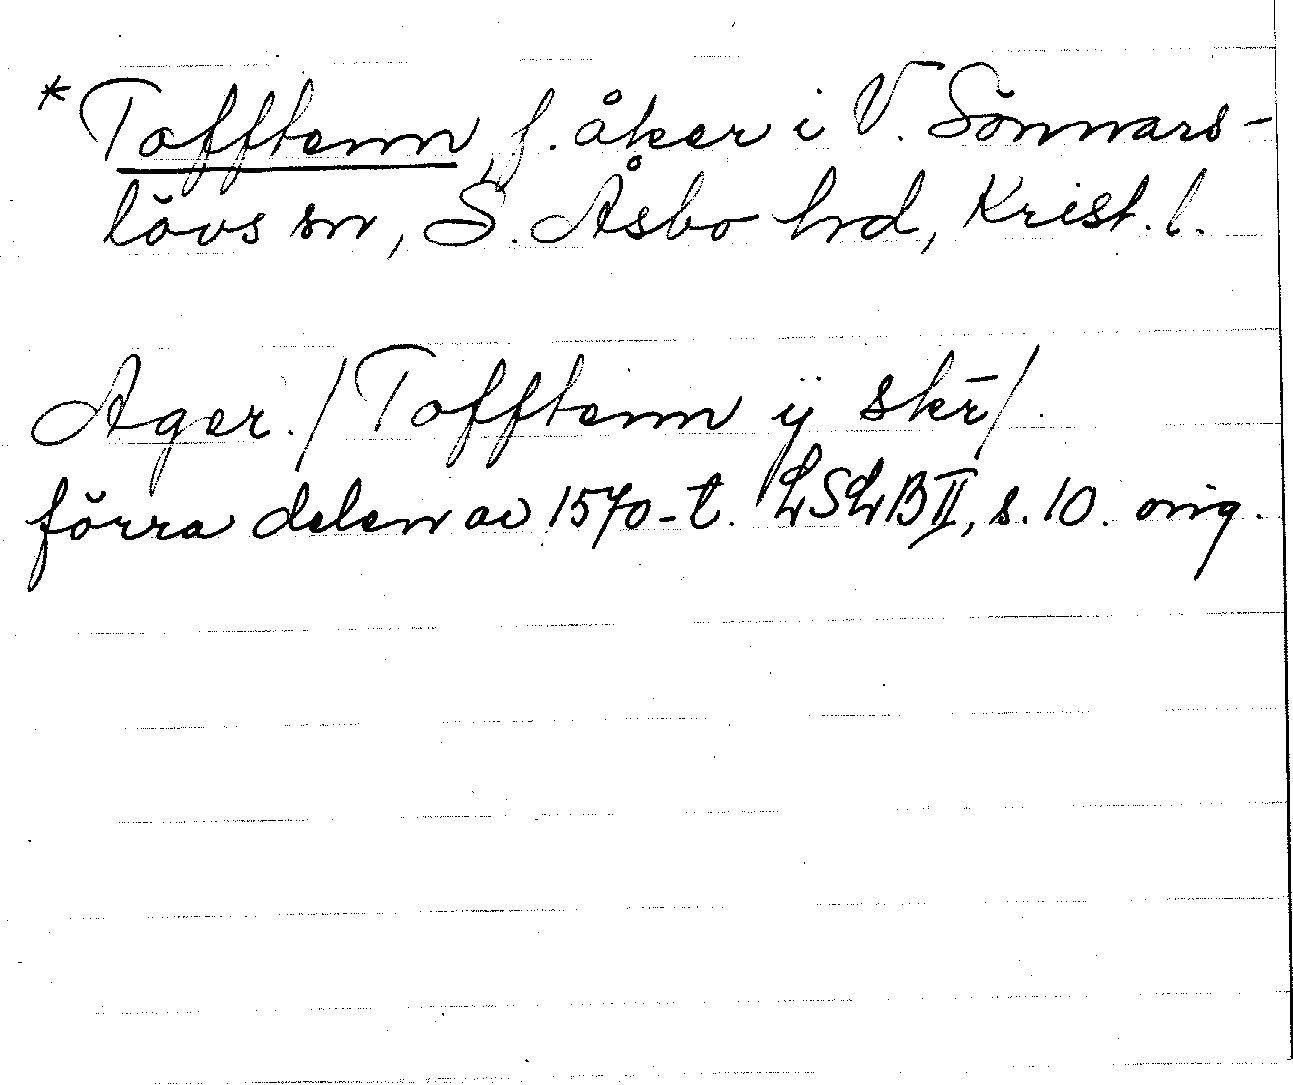 *Tofftenn, f. åker i V. Sönnars-
lövs sn, S. Åsbo hd, Krist. l.
Ager. / Tofftenn ÿ skr̄ / .
förra delen av 1570-t. LSLB II, s. 10. orig.